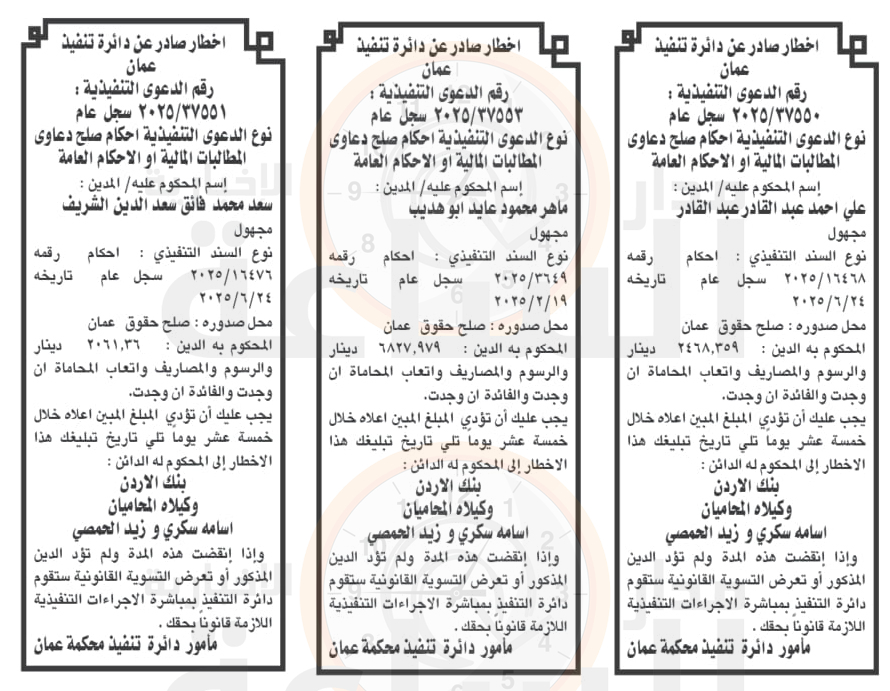 اخطار صادر عن دائرة تنفيذ
عمان
رقم الدعوى التنفيذية :
٢٠٢٥/٣٧٥٥٠ سجل عام
نوع الدعوى التنفيذية احكام صلح دعاوى
المطالبات المالية او الاحكام العامة
إسم المحكوم عليه/ المدين :
علي احمد عبد القادر عبد القادر
مجهول
نوع السند التنفيذي : احكام رقمه
٢٠٢٥/١٦٤٦٨ سجل عام تاريخه
٢٠٢٥/٦/٢٤
محل صدوره : صلح حقوق عمان
المحكوم به الدين : ٢٤٦٨,٣٥٩ دينار
والرسوم والمصاريف واتعاب المحاماة ان
وجدت والفائدة ان وجدت.
يجب عليك أن تؤدي المبلغ المبين اعلاه خلال
خمسة عشر يوما تلي تاريخ تبليغك هذا
الاخطار إلى المحكوم له الدائن :
بنك الاردن
وكيلاه المحاميان
اسامه سكري و زيد الحمصي
وإذا إنقضت هذه المدة ولم تؤد الدين
المذكور أو تعرض التسوية القانونية ستقوم
دائرة التنفيذ بمباشرة الاجراءات التنفيذية
اللازمة قانوناً بحقك .
مأمور دائرة تنفيذ محكمة عمان
اخطار صادر عن دائرة تنفيذ
عمان
رقم الدعوى التنفيذية :
٢٠٢٥/٣٧٥٥٣ سجل عام
نوع الدعوى التنفيذية احكام صلح دعاوى
المطالبات المالية او الاحكام العامة
إسم المحكوم عليه/ المدين :
ماهر محمود عايد ابو هديب
مجهول
نوع السند التنفيذي : احكام رقمه
٢٠٢٥/٣٦٤٩ سجل عام تاريخه
٢٠٢٥/٢/١٩
محل صدوره : صلح حقوق عمان
المحكوم به الدين : ٦٨٢٧,٩٧٩ دينار
والرسوم والمصاريف واتعاب المحاماة ان
وجدت والفائدة ان وجدت.
يجب عليك أن تؤدي المبلغ المبين اعلاه خلال
خمسة عشر يوما تلي تاريخ تبليغك هذا
الاخطار إلى المحكوم له الدائن :
بنك الاردن
وكيلاه المحاميان
اسامه سكري و زيد الحمصي
وإذا إنقضت هذه المدة ولم تؤد الدين
المذكور أو تعرض التسوية القانونية ستقوم
دائرة التنفيذ بمباشرة الاجراءات التنفيذية
اللازمة قانوناً بحقك .
مأمور دائرة تنفيذ محكمة عمان
اخطار صادر عن دائرة تنفيذ
عمان
رقم الدعوى التنفيذية :
٢٠٢٥/٣٧٥٥١ سجل عام
نوع الدعوى التنفيذية احكام صلح دعاوى
المطالبات المالية او الاحكام العامة
إسم المحكوم عليه/ المدين :
سعد محمد فائق سعد الدين الشريف
مجهول
نوع السند التنفيذي : احكام رقمه
٢٠٢٥/١٦٤٧٦ سجل عام تاريخه
٢٠٢٥/٦/٢٤
محل صدوره : صلح حقوق عمان
المحكوم به الدين : ٢٠٦١,٣٦ دينار
والرسوم والمصاريف واتعاب المحاماة ان
وجدت والفائدة ان وجدت.
يجب عليك أن تؤدي المبلغ المبين اعلاه خلال
خمسة عشر يوما تلي تاريخ تبليغك هذا
الاخطار إلى المحكوم له الدائن :
بنك الاردن
وكيلاه المحاميان
اسامه سكري و زيد الحمصي
وإذا إنقضت هذه المدة ولم تؤد الدين
المذكور أو تعرض التسوية القانونية ستقوم
دائرة التنفيذ بمباشرة الاجراءات التنفيذية
اللازمة قانوناً بحقك .
مأمور دائرة تنفيذ محكمة عمان